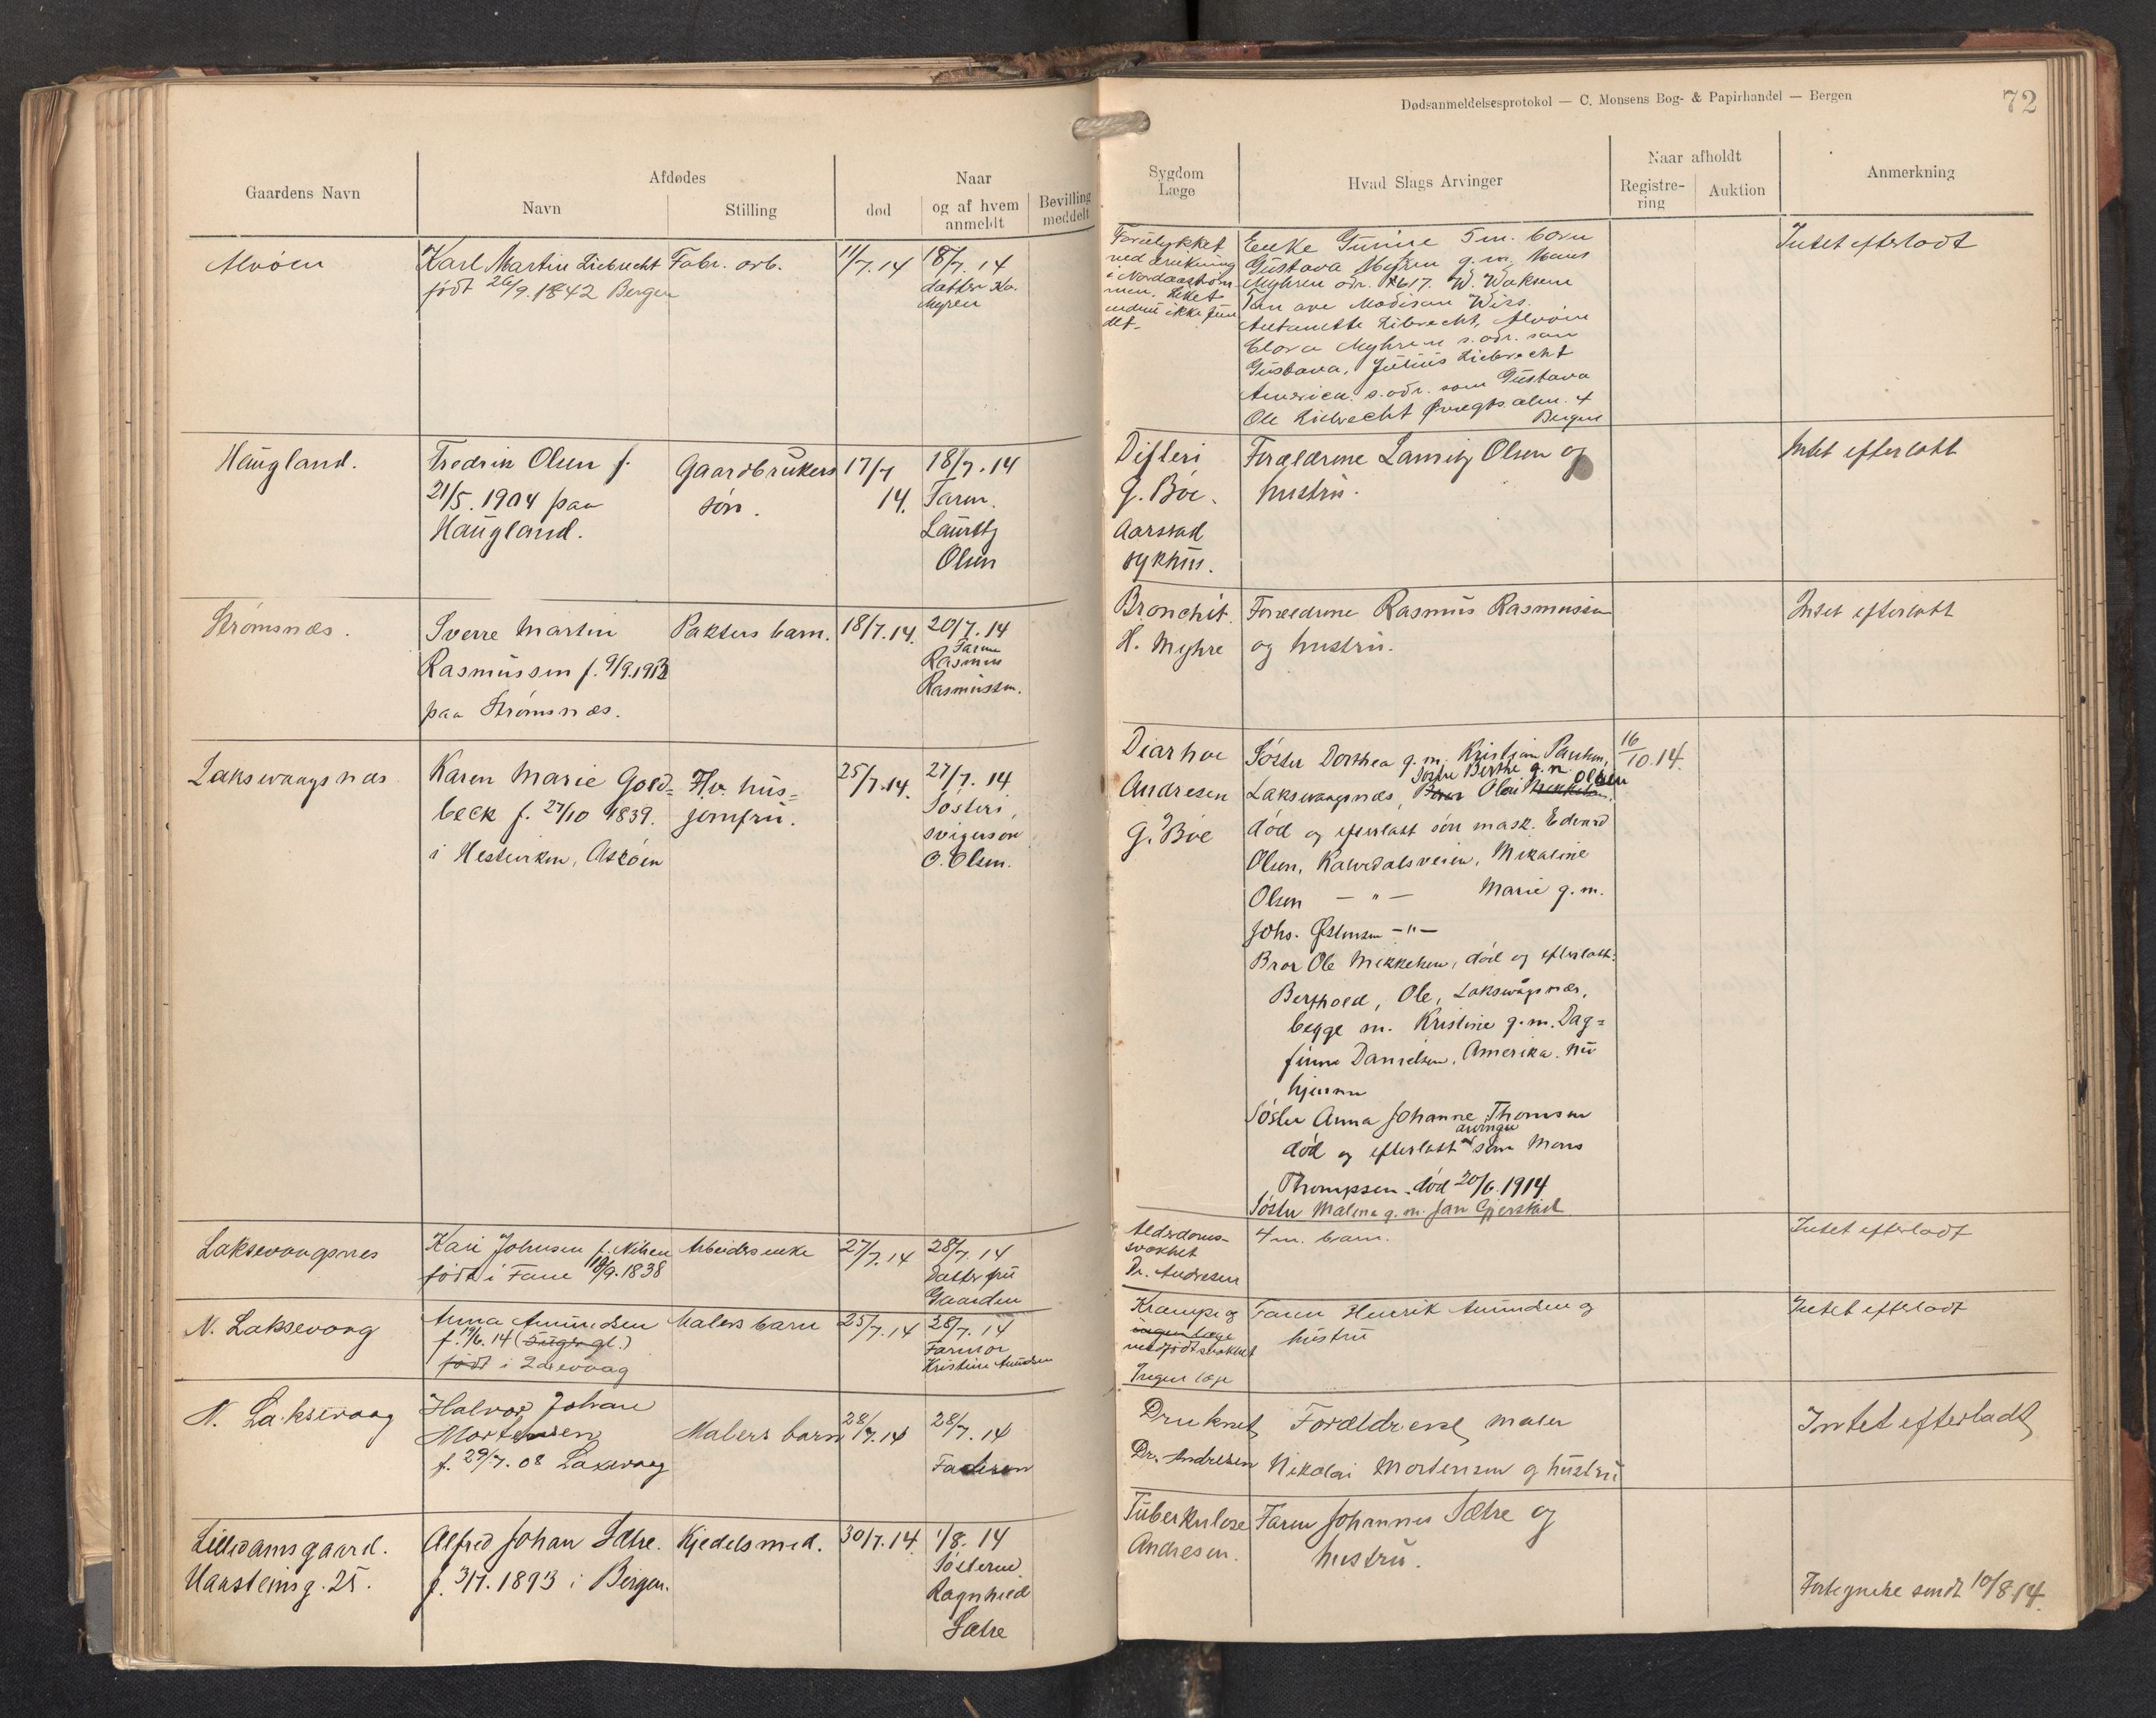 Dødsanmeldelsesprotokol — C. Monsens Bog- & Papirhandel — Bergen
72
Gaardens Navn
Afdødes
Navn
Stilling
død
Naar
og af hvem
anmeldt
Bevilling
meddelt
Sygdom
Læge
Hvad Slags Arvinger
Naar afholdt
Registre-
ring
Auktion
Anmerkning
Alvøen
Karl Martin Liebrecht
født 26/9.1842 Bergen
Fabr. arb.
11/7.14
18/7.14
datter Ka.
Myren
Forulykket
ved drukning
i Nordaastrøm
men. Liket
endnu ikke fun
det.
Enke Gurine 5 m. børn
Gustava Myhren g.m. Mons
Myhren adr. 617. W. Waksem
Tan ave Madison Wiss.
Antonette Liebrecht, Alvøen
Clara Myhren s. adr. som
Gustava, Julius Liebrecht
America s. adr. som Gustava
Ole Liebrecht alm. 4
Bergen
Intet efterladt
Haugland.
Fredrik Olsen f.
21/5.1904 paa
Haugland.
Gaardbrukers
søn.
17/7
14.
18/7.14
Faren.
Lauritz
Olsen
Difteri
G. Bøe.
Aarstad
sykhus.
Forældrene Lauritz Olsen og
hustru.
Intet efterlatt
Strømsnæs.
Sverre Martin
Rasmussen f. 9/9.1913
paa Strømsnæs.
Pakters barn.
18/7.14.
20/7.14
Faren
Rasmus
Rasmussen.
Bronchit.
H. Myhre
Forældrene Rasmus Rasmussen
og hustru.
Intet efterlatt
Laksevaagsnæs
Karen Marie Gold=
beck f. 27/10 1839.
i Hestviken, Askøen
Hv. hus=
jomfru.
25/7.14.
27/7.14
Søsters
svigersøn
O. Olsen.
Diarhoe
Andresen
G. Bøe
Søster Dorthea g.m. Kristian Paulsen,
Søster Berthe g.m.
Laksevaagsnæs, Olai Mikkelsen Olsen
død og efterlatt søn mask. Edvard
Olsen, Kalvedalsveien, Mikaline
Olsen — " — Marie g.m.
Johs. Østensen —"—
Bror Ole Mikkelsen, død og efterlatt:
Berthold, Ole, Laksevågsnæs,
begge m. Kristine g.m. Dag=
finn Danielsen, Amerika. nu
hjemme
Søster Anna Johanne Thomsen
arvinger
død og efterlatt søn Mons
Thompsen. død 20/6.1914
Søster Malena g.m. Jan Gjerstad.
16/10.14.
Laksevaagsnes
Kari Johnsen f. Nilsen
født i Fane 18/9.1838
Arbeiders enke
27/7.14
28/7.14
Datter fru
Gaarden
Alderdoms-
svakhet
Dr. Andresen
4 m. barn.
Intet efterladt
N. Laksevaag
Anna Amundsen
f. 19/6.14 (5 uger gl.)
født i Laxevaag
Malers barn
25/7.14
28/7.14
Farmor
Kristine Amundsen
Krampe og
ingen læge
medfødt svakhet
Ingen læge
Faren Henrik Amundsen og
hustru
Intet efterladt
N. Laksevaag
Halvor Johan
Mortensen
f. 29/7.08 Laxevaag
Malers barn
28/7.14
28/7.14
Faderen
Druknet
Dr. Andresen
Forældrene, maler
Nikolai Mortensen og hustru
Intet efterladt
Lilledamsgaard.
Haasteinsg. 25.
Alfred Johan Sætre.
f. 3/7.1893 i Bergen.
Kjedelsmed.
30/7.14
1/8.14
Søsteren
Ragnhild
Sætre
Tuberkulose
Andresen.
Faren Johannes Sætre og
hustru.
Fortegnelse sendt 10/8.14.